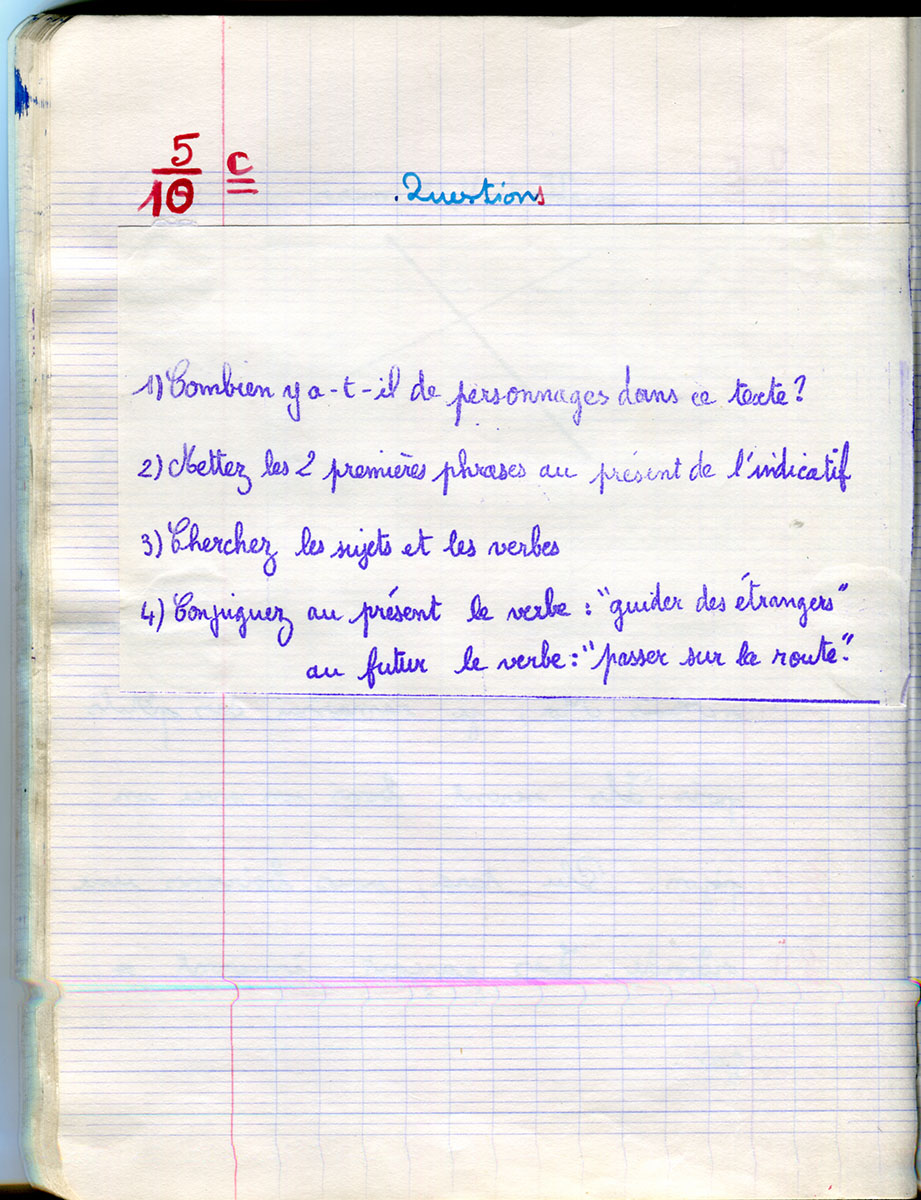 5
10
C
.Questions
1) Combien y a-t-il de personnages dans ce texte?
2) Mettez les 2 premières phrases au présent de l'indicatif
3) Cherchez les sujets et les verbes
4) Conjuguez au présent le verbe : "guider des étrangers"
au futur le verbe : "passer sur la route".